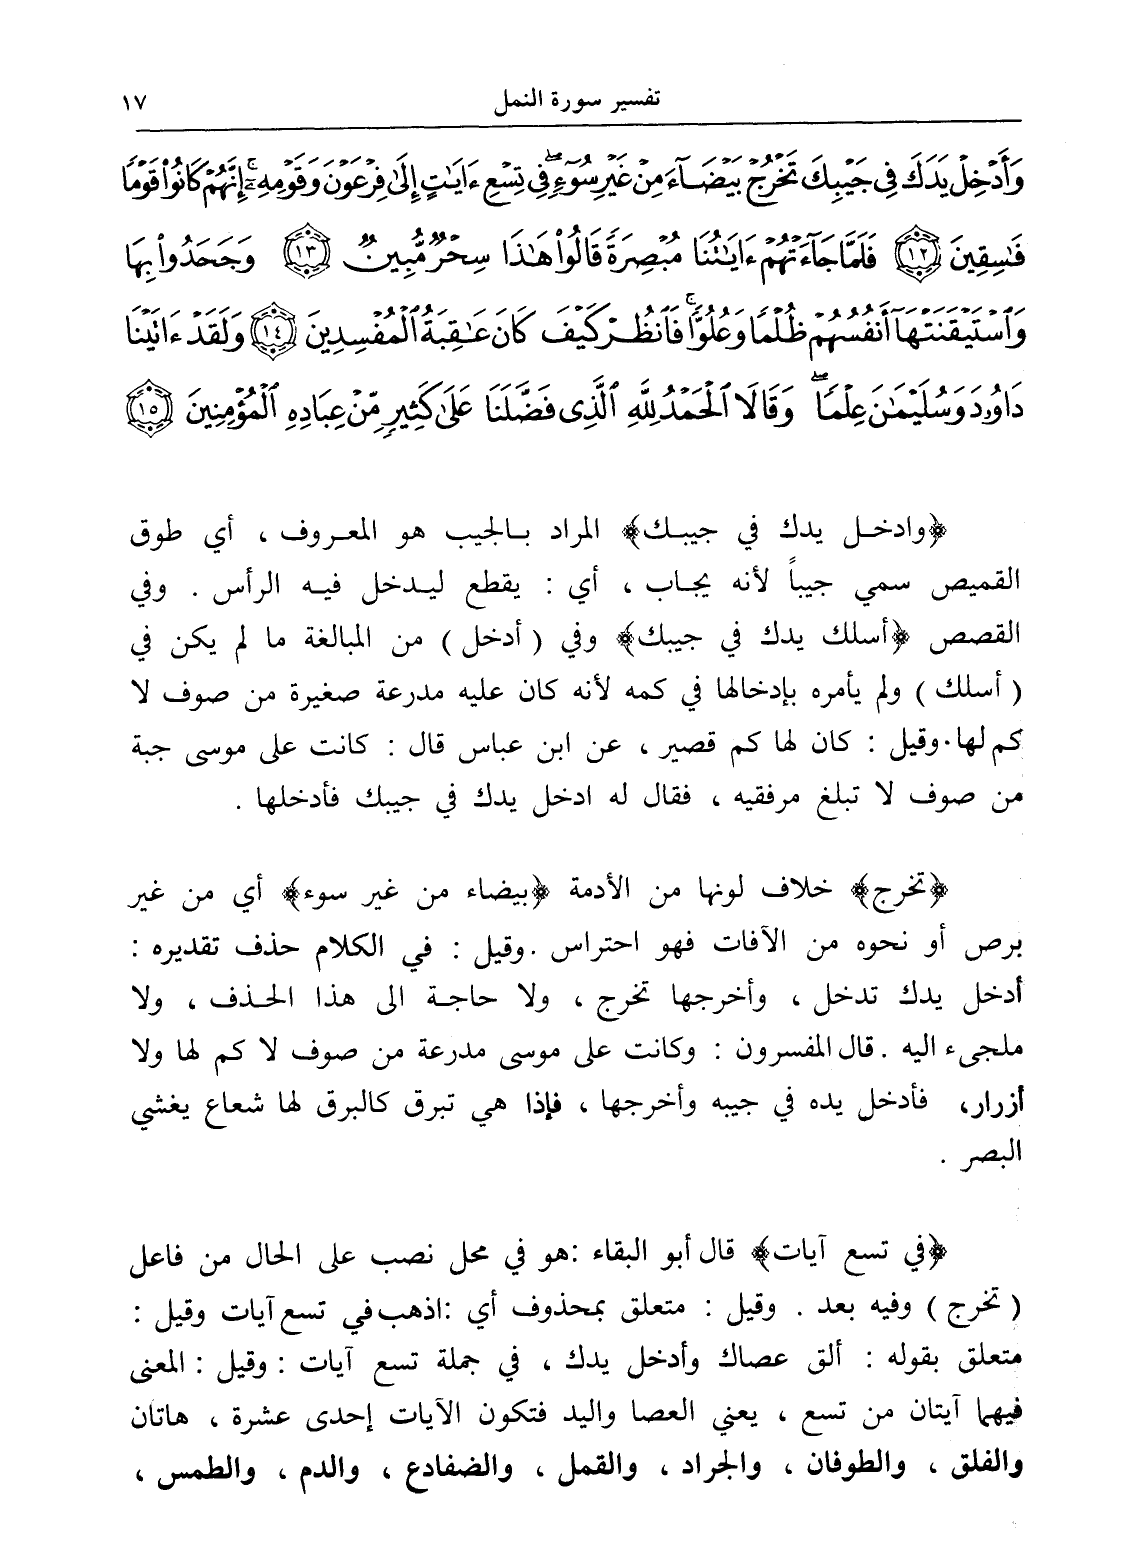 تفسير سورة النمل ١٧
وَأَدْخِلْ يَدَكَ فِى جَيْبِكَ تَخْرُجْ بَيْضَآءَ مِنْ غَيْرِ سُوٓءٍ ۖ فِى تِسْعِ ءَايَٰتٍ إِلَىٰ فِرْعَوْنَ وَقَوْمِهِۦٓ ۚ إِنَّهُمْ كَانُوا۟ قَوْمًا
فَٰسِقِينَ ١٢ فَلَمَّا جَآءَتْهُمْ ءَايَٰتُنَا مُبْصِرَةً قَالُوا۟ هَٰذَا سِحْرٌ مُّبِينٌ ١٣ وَجَحَدُوا۟ بِهَا
وَٱسْتَيْقَنَتْهَآ أَنفُسُهُمْ ظُلْمًا وَعُلُوًّا ۚ فَٱنظُرْ كَيْفَ كَانَ عَٰقِبَةُ ٱلْمُفْسِدِينَ ١٤ وَلَقَدْ ءَاتَيْنَا
دَاوُۥدَ وَسُلَيْمَٰنَ عِلْمًا ۖ وَقَالَا ٱلْحَمْدُ لِلَّهِ ٱلَّذِى فَضَّلَنَا عَلَىٰ كَثِيرٍ مِّنْ عِبَادِهِ ٱلْمُؤْمِنِينَ ١٥
﴿وادخل يدك في جيبك﴾ المراد بالجيب هو المعروف ، أي طوق
القميص سمي جيباً لأنه يجاب ، أي : يقطع ليدخل فيه الرأس . وفي
القصص ﴿أسلك يدك في جيبك﴾ وفي ( أدخل ) من المبالغة ما لم يكن في
( أسلك ) ولم يأمره بإدخالها في كمه لأنه كان عليه مدرعة صغيرة من صوف لا
كم لها . وقيل : كان لها كم قصير ، عن ابن عباس قال : كانت على موسى جبة
من صوف لا تبلغ مرفقيه ، فقال له ادخل يدك في جيبك فأدخلها .
﴿تخرج﴾ خلاف لونها من الأدمة ﴿بيضاء من غير سوء﴾ أي من غير
برص أو نحوه من الآفات فهو احتراس . وقيل : في الكلام حذف تقديره :
أدخل يدك تدخل ، وأخرجها تخرج ، ولا حاجة الى هذا الحذف ، ولا
ملجىء اليه . قال المفسرون : وكانت على موسى مدرعة من صوف لا كم لها ولا
أزرار، فأدخل يده في جيبه وأخرجها ، فإذا هي تبرق كالبرق لها شعاع يغشي
البصر .
﴿في تسع آيات﴾ قال أبو البقاء : هو في محل نصب على الحال من فاعل
( تخرج ) وفيه بعد . وقيل : متعلق بمحذوف أي : اذهب في تسع آيات وقيل :
متعلق بقوله : ألق عصاك وأدخل يدك ، في جملة تسع آيات : وقيل : المعنى
فيهما آيتان من تسع ، يعني العصا واليد فتكون الآيات إحدى عشرة ، هاتان
والفلق ، والطوفان ، والجراد ، والقمل ، والضفادع ، والدم ، والطمس ،